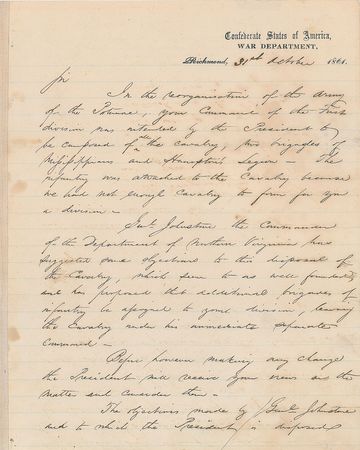 Confederate States of America,
WAR DEPARTMENT,
Richmond, 31st October 1861.
Sir
In the reorganisation of the Army
of the Potomac, your Command of the First
division was intended by the President to
be composed of all the cavalry, two brigades of
Mississippians and Hampton's Legion — The
infantry was attached to the Cavalry because
we had not enough Cavalry to form for you
a division —
Genl. Johnston the Commander
of the Department of Northern Virginia has
suggested some objections to this disposal of
the Cavalry, which seem to us well founded
and has proposed that additional brigades of
infantry be assigned to your division, leaving
the Cavalry under his immediate separate
Command —
Before however making any change
the President will receive your views on the
matter and consider them —
The objections made by Genl. Johnston
and to which the President is disposed